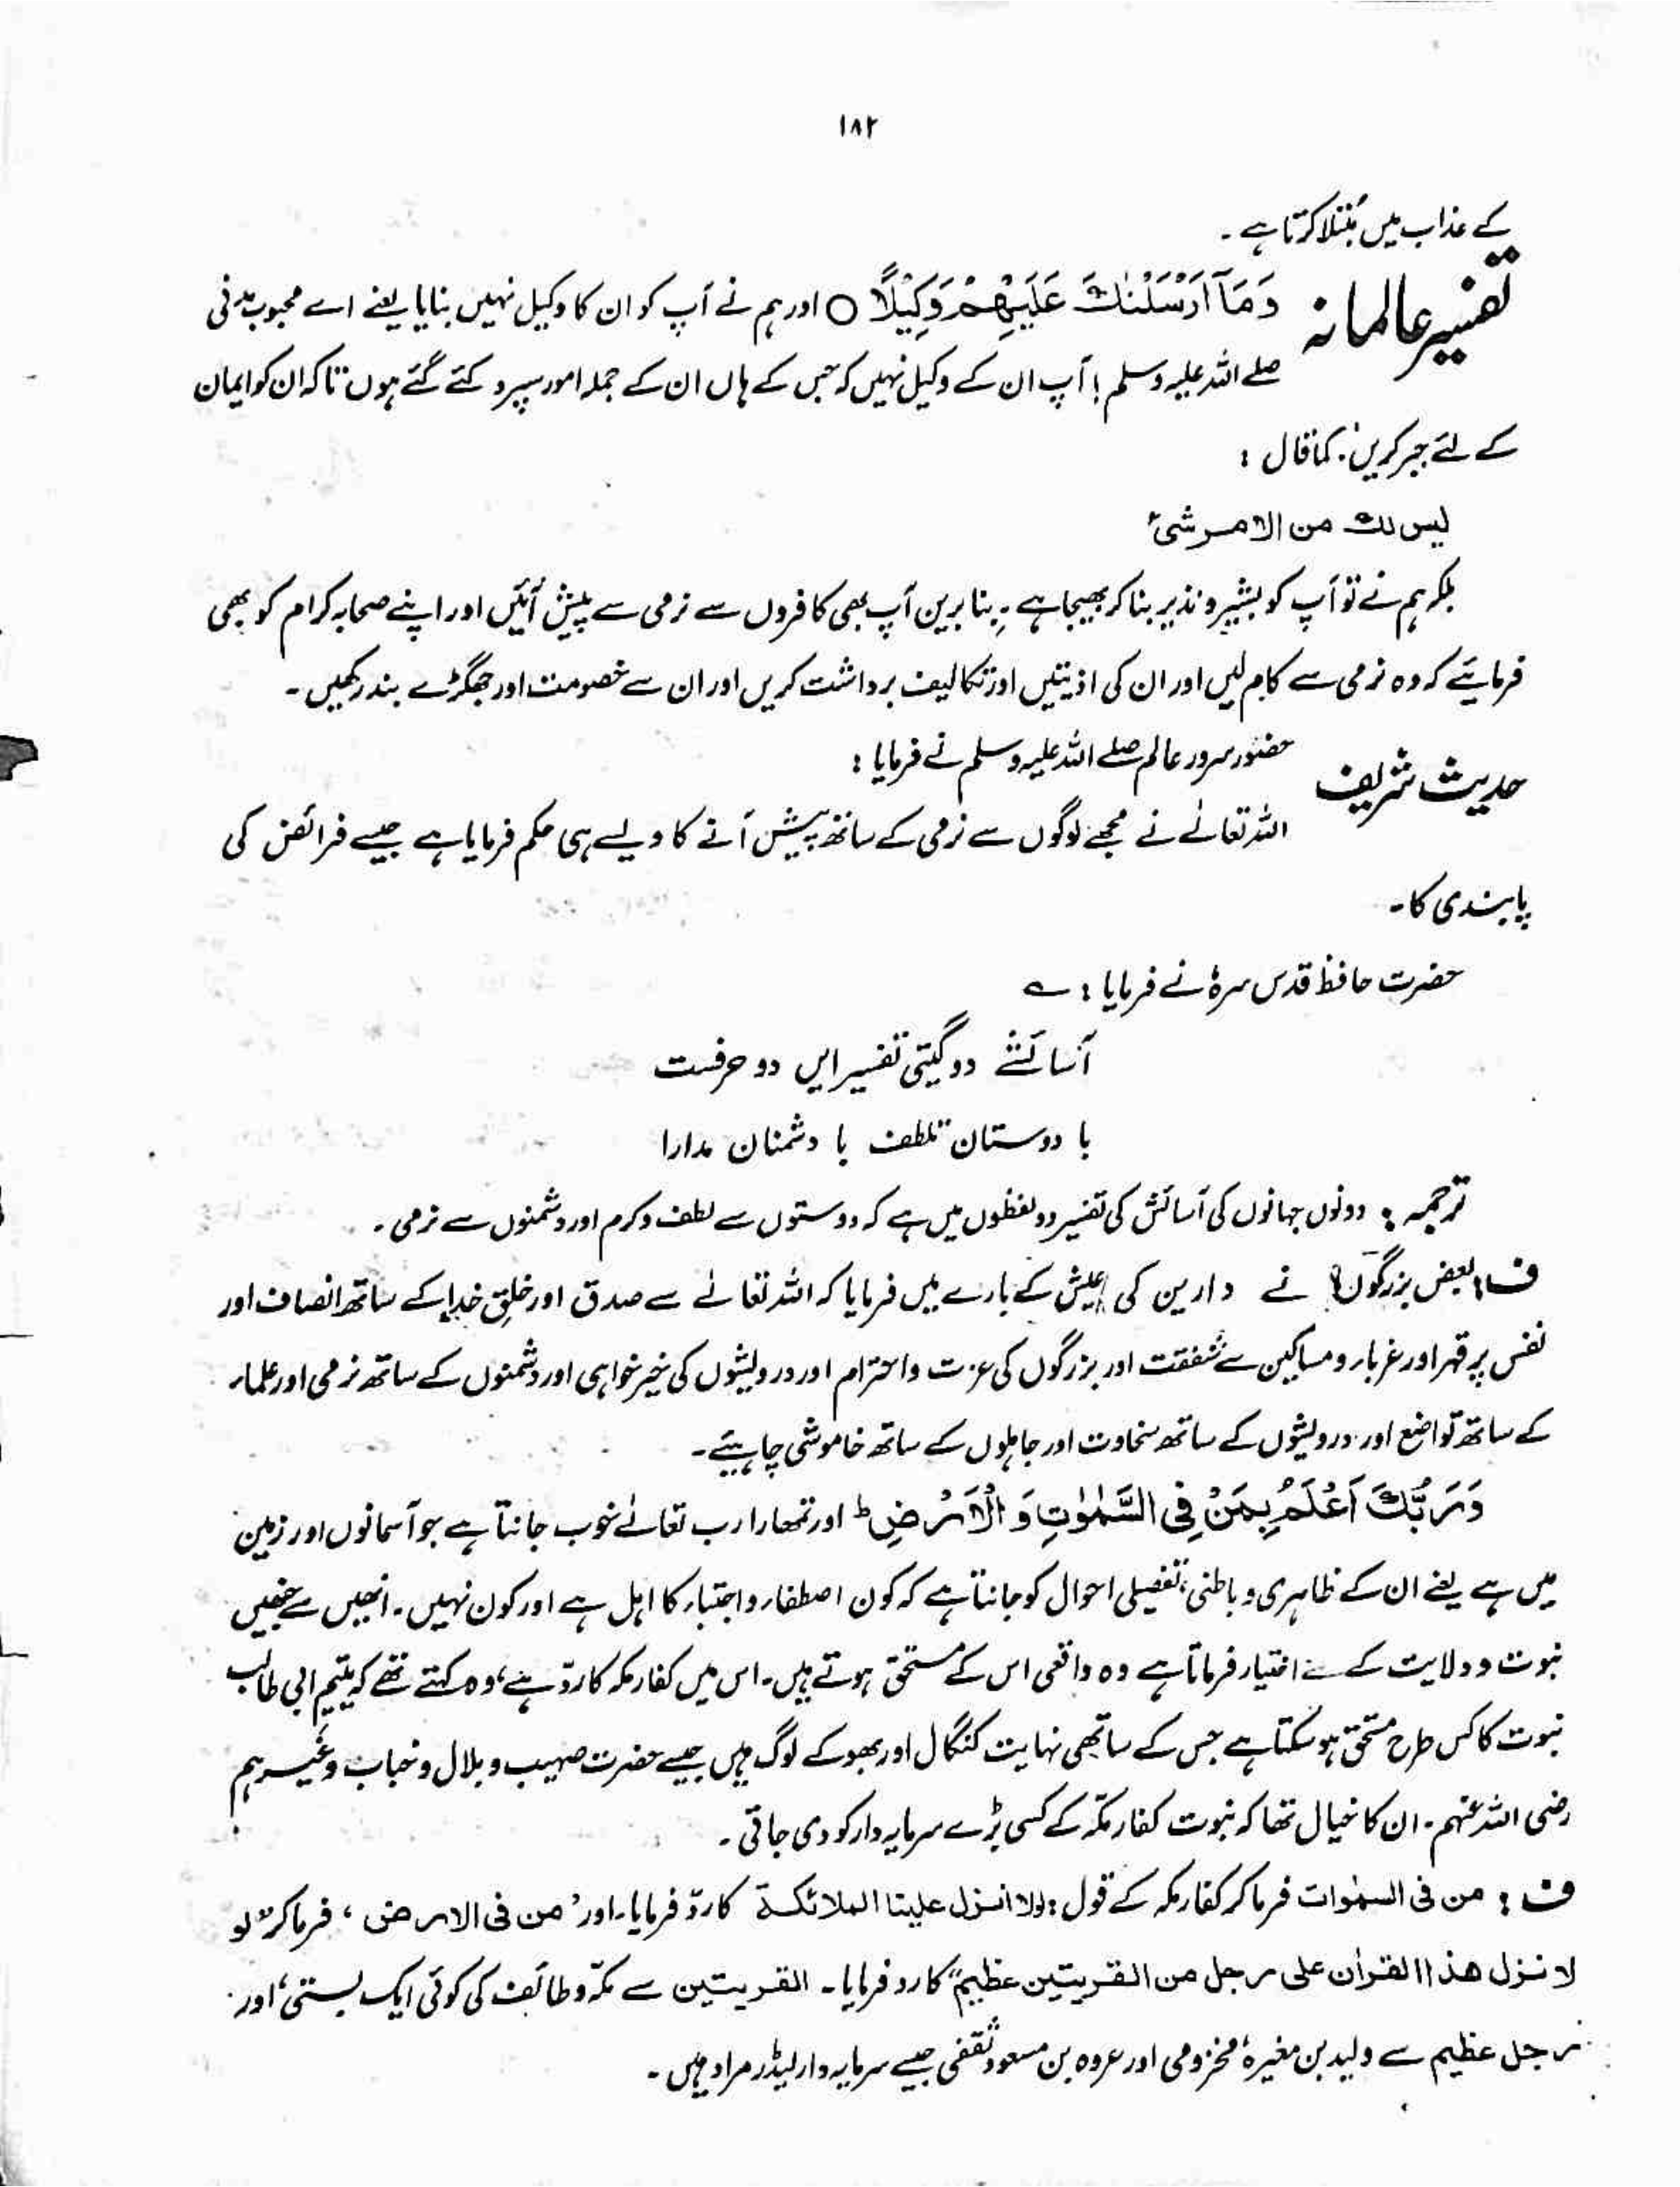 ۱۸۲
کے عذاب میں مُبتلا کرتا ہے۔
تفسیر عالمانہ وَمَآ اَرْسَلْنٰكَ عَلَیْهِمْ وَكِیْلًا ○ اور ہم نے آپ کو ان کا وکیل نہیں بنایا یعنے اے محبوب مدنی
صلے اللہ علیہ وسلم! آپ ان کے وکیل نہیں کہ جس کے ہاں ان کے جملہ امور سپرد کئے گئے ہوں تاکہ ان کو ایمان
کے لئے جبر کریں۔ کما قال :
لیس لك من الامر شیٔ
بلکہ ہم نے تو آپ کو بشیر و نذیر بنا کر بھیجا ہے۔ بنا بریں آپ بھی کافروں سے نرمی سے پیش آئیں اور اپنے صحابہ کرام کو بھی
فرمایئے کہ وہ نرمی سے کام لیں اور ان کی اذیتیں اور تکالیف برداشت کریں اور ان سے خصومت اور جھگڑے بند رکھیں۔
حدیث شریف حضور سرور عالم صلے اللہ علیہ وسلم نے فرمایا :
اللہ تعالےٰ نے مجھے لوگوں سے نرمی کے ساتھ پیش آنے کا ویسے ہی حکم فرمایا ہے جیسے فرائض کی
پابندی کا۔
حضرت حافظ قدس سرہٗ نے فرمایا : ؎
آسائشے دو گیتی تفسیر ایں دو حرفست
با دوستان تلطف با دشمنان مدارا
ترجمہ : دونوں جہانوں کی آسائش کی تفسیر دو لفظوں میں ہے کہ دوستوں سے لطف و کرم اور دشمنوں سے نرمی۔
ف : بعض بزرگوں نے دارین کی عیش کے بارے میں فرمایا کہ اللہ تعالےٰ سے صدق اور خلقِ خدا کے ساتھ انصاف اور
نفس پر قہر اور غربار و مساکین سے شفقت اور بزرگوں کی عزت و احترام اور درویشوں کی خیر خواہی اور دشمنوں کے ساتھ نرمی اور علمار
کے ساتھ تواضع اور درویشوں کے ساتھ سخاوت اور جاہلوں کے ساتھ خاموشی چاہیئے۔
وَرَبُّكَ اَعْلَمُ بِمَنْ فِی السَّمٰوٰتِ وَ الْاَرْضِ ط اور تمھارا رب تعالےٰ خوب جانتا ہے جو آسمانوں اور زمین
میں ہے یعنے ان کے ظاہری و باطنی، تفصیلی احوال کو جانتا ہے کہ کون اصطفار و اجتبار کا اہل ہے اور کون نہیں۔ انھیں سے جنھیں
نبوت و ولایت کے لئے اختیار فرماتا ہے وہ واقعی اس کے مستحق ہوتے ہیں۔ اس میں کفار مکہ کا ردّ ہے، وہ کہتے تھے کہ یتیم ابی طالب
نبوت کا کس طرح مستحق ہو سکتا ہے جس کے ساتھی نہایت کنگال اور بھوکے لوگ ہیں جیسے حضرت صہیب و بلال و خباب وغیرہم
رضی اللہ عنہم۔ ان کا خیال تھا کہ نبوت کفار مکّہ کے کسی بڑے سرمایہ دار کو دی جاتی۔
ف : من فی السمٰوات فرما کر کفار مکہ کے قول : لولا انزل علینا الملائکۃ کا ردّ فرمایا۔ اور ’من فی الارض‘ فرما کر ”لو
لا نزل ھذا القراٰن علی رجل من القریتین عظیم“ کا رد فرمایا۔ القریتین سے مکّہ و طائف کی کوئی ایک بستی، اور
رجل عظیم سے ولید بن مغیرہ مخزومی اور عروہ بن مسعود ثقفی جیسے سرمایہ دار لیڈر مراد ہیں۔